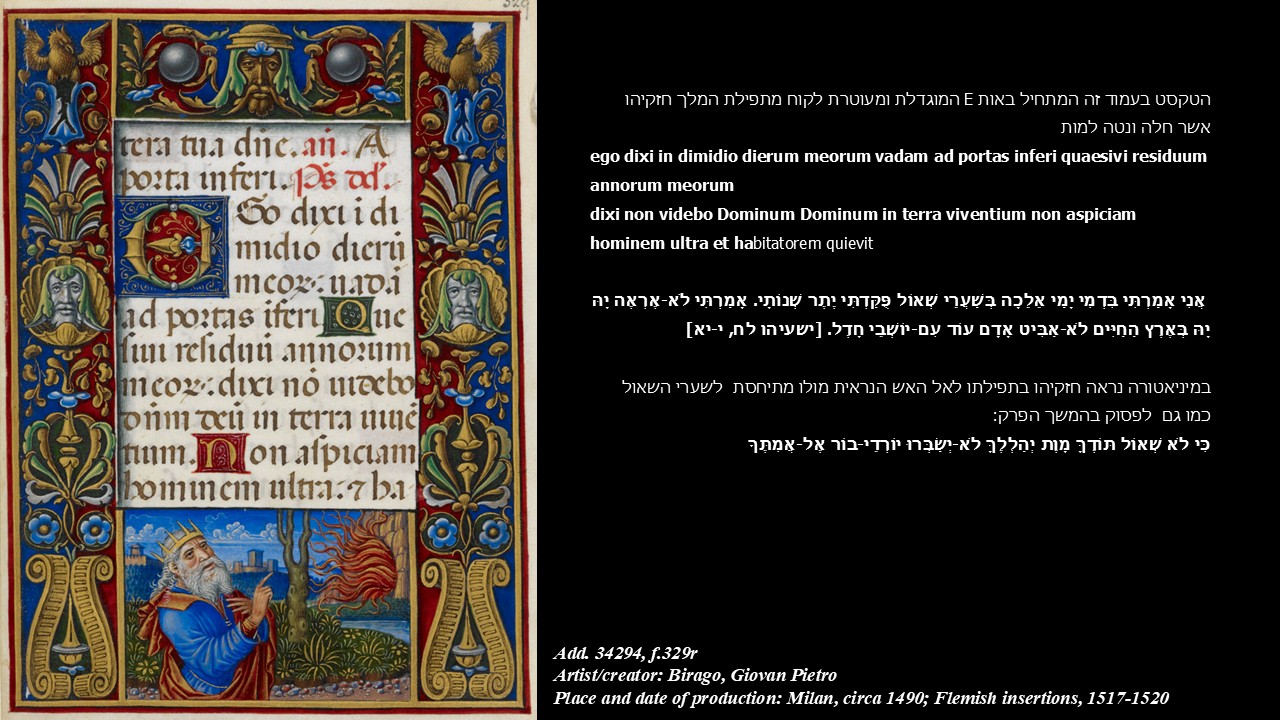 329
tera tua dñe. añ. A
porta inferi. Ps dd.
EGo dixi i di
midio dierū
meoꝝ: uadā
ad portas iferi Que
siui residuū annorum
meoꝝ: dixi nō uidebo
dñm deū in terra uiuē
tium. Non aspiciam
hominem ultra. ⁊ ha-
הטקסט בעמוד זה המתחיל באות E המוגדלת ומעוטרת לקוח מתפילת המלך חזקיהו
אשר חלה ונטה למות
ego dixi in dimidio dierum meorum vadam ad portas inferi quaesivi residuum
annorum meorum
dixi non videbo Dominum Dominum in terra viventium non aspiciam
hominem ultra et habitatorem quievit
אֲנִי אָמַרְתִּי בִּדְמִי יָמַי אֵלֵכָה בְּשַׁעֲרֵי שְׁאוֹל פֻּקַּדְתִּי יֶתֶר שְׁנוֹתָי. אָמַרְתִּי לֹא-אֶרְאֶה יָהּ
יָהּ בְּאֶרֶץ הַחַיִּים לֹא-אַבִּיט אָדָם עוֹד עִם-יוֹשְׁבֵי חָדֶל. [ישעיהו לח, י-יא]
במיניאטורה נראה חזקיהו בתפילתו לאל האש הנראית מולו מתיחסת לשערי השאול
כמו גם לפסוק בהמשך הפרק:
כִּי לֹא שְׁאוֹל תּוֹדֶךָּ מָוֶת יְהַלְלֶךָּ לֹא-יְשַׂבְּרוּ יוֹרְדֵי-בוֹר אֶל-אֲמִתֶּךָ
Add. 34294, f.329r
Artist/creator: Birago, Giovan Pietro
Place and date of production: Milan, circa 1490; Flemish insertions, 1517-1520